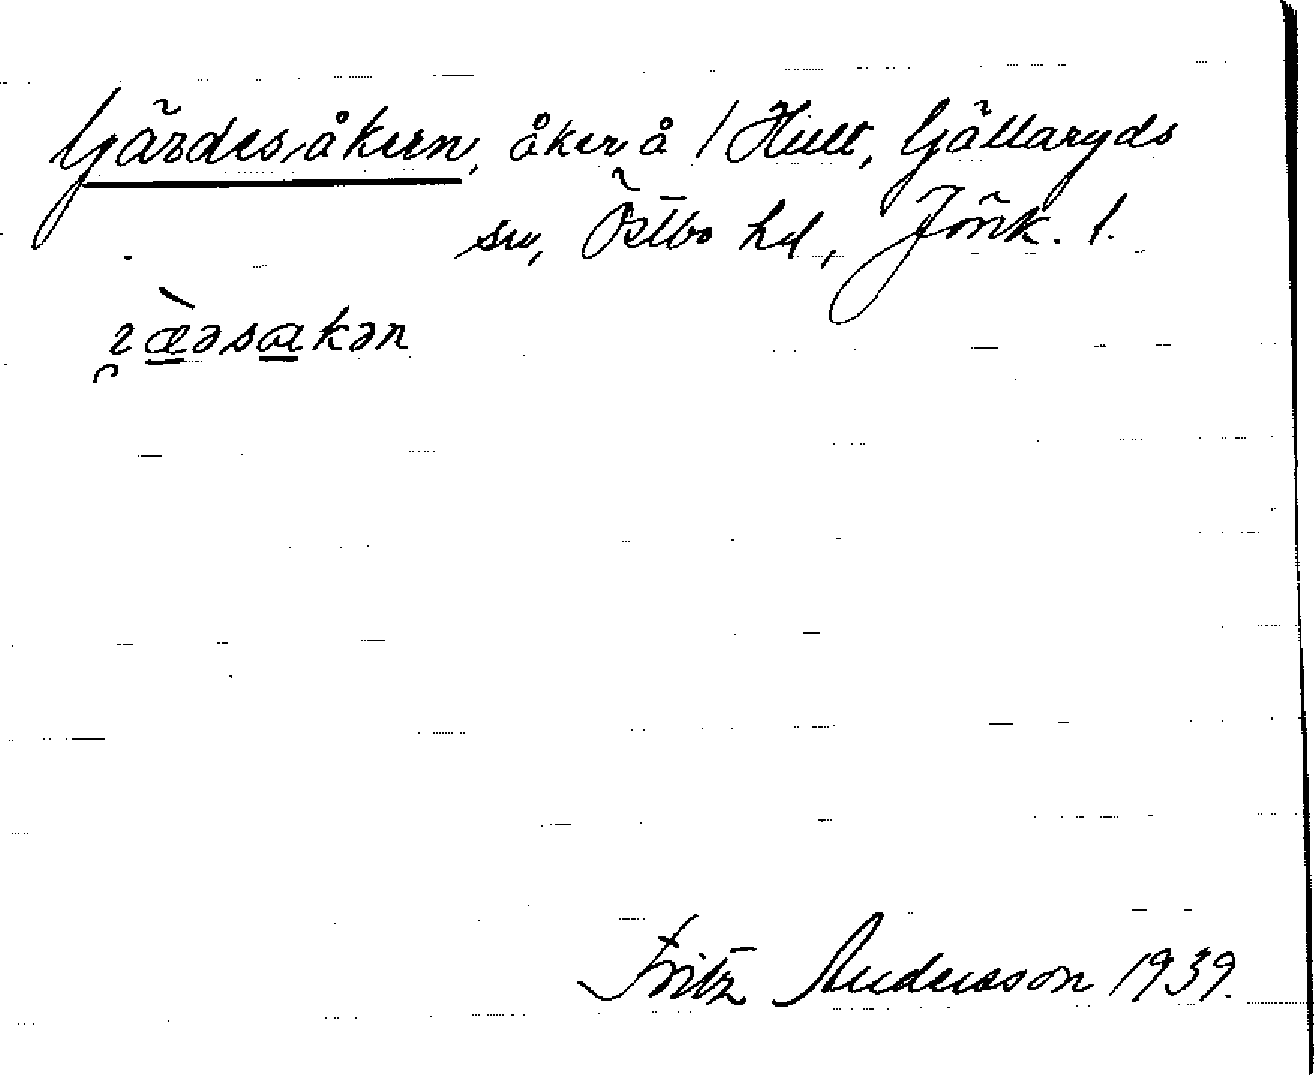 Gärdesåkern, åker å / Hult, Gällaryds
sn, Östbo hd, Jönk. l.
Fritz Andersson 1939.